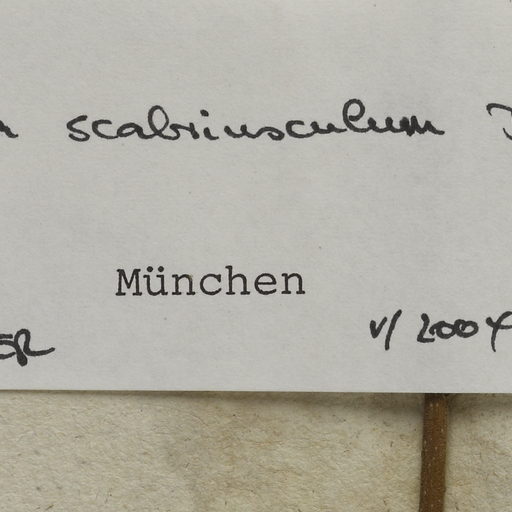 scabriusculum
München
ER v/ 2004